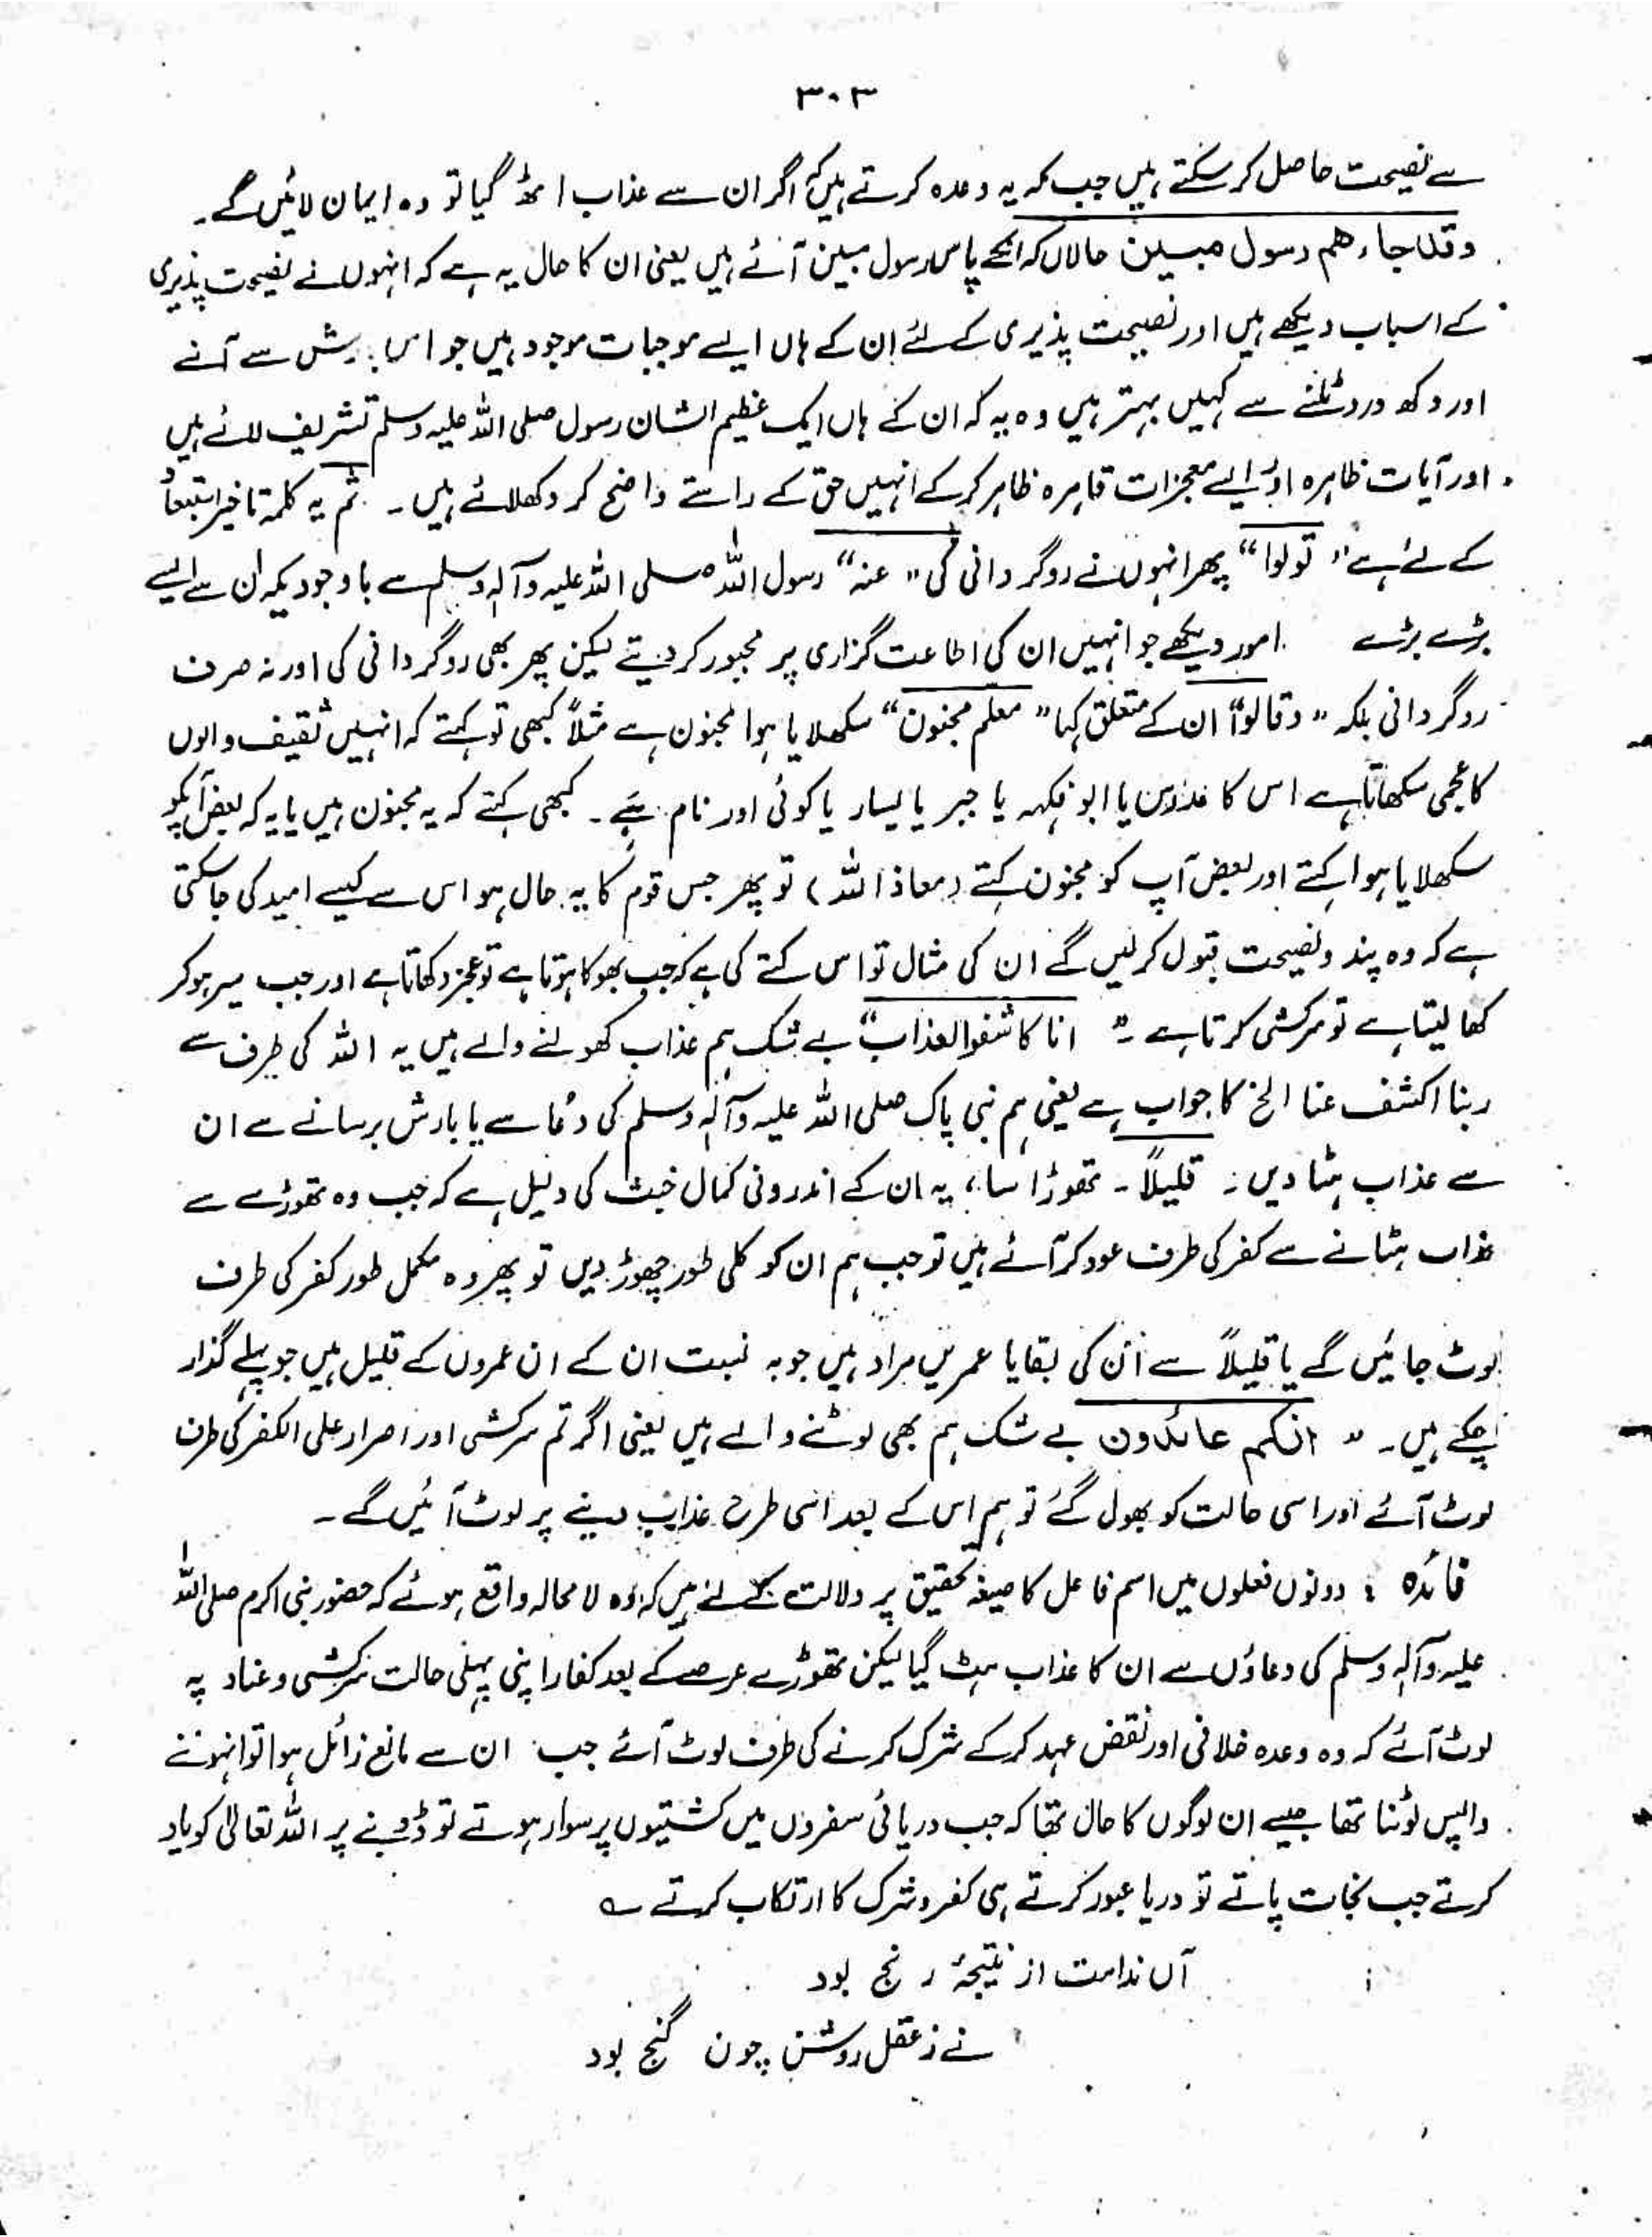 ۳۰۳
سے نصیحت حاصل کر سکتے ہیں جب کہ یہ وعدہ کرتے ہیں کہ اگر ان سے عذاب اٹھ گیا تو وہ ایمان لائیں گے۔
وقد جاءھم رسول مبین حالاں کہ انکے پاس رسول مبین آئے ہیں یعنی ان کا حال یہ ہے کہ انہوں نے نصیحت پذیری
کے اسباب دیکھے ہیں اور نصیحت پذیری کے لئے ان کے ہاں ایسے موجبات موجود ہیں جو اس بارش سے آنے
اور دکھ درد ٹلنے سے کہیں بہتر ہیں وہ یہ کہ ان کے ہاں ایک عظیم الشان رسول صلی اللہ علیہ وسلم تشریف لائے ہیں
اور آیات ظاہرہ اور ایسے معجزات قاہرہ ظاہر کر کے انہیں حق کے راستے واضح کر دکھلائے ہیں۔ ثم یہ کلمہ تاخیر استبعاد
کے لئے ہے " تولوا " پھر انہوں نے روگردانی کی " عنہ " رسول اللہ صلی اللہ علیہ وآلہ وسلم سے باوجودیکہ ان سے ایسے
بڑے بڑے امور دیکھے جو انہیں ان کی اطاعت گزاری پر مجبور کر دیتے لیکن پھر بھی روگردانی کی اور نہ صرف
روگردانی بلکہ " وقالوا " ان کے متعلق کہا " معلم مجنون " سکھلایا ہوا مجنون ہے مثلاً کبھی تو کہتے کہ انہیں ثقیف والوں
کا عجمی سکھاتا ہے اس کا عداس یا ابو فکیہہ یا جبر یا یسار یا کوئی اور نام ہے۔ کبھی کہتے کہ یہ مجنون ہیں یا یہ کہ بعض آپکو
سکھلایا ہوا کہتے اور بعض آپ کو مجنون کہتے (معاذ اللہ) تو پھر جس قوم کا یہ حال ہو اس سے کیسے امید کی جا سکتی
ہے کہ وہ پند و نصیحت قبول کر لیں گے ان کی مثال تو اس کتے کی ہے کہ جب بھوکا ہوتا ہے تو عجز دکھاتا ہے اور جب سیر ہو کر
کھا لیتا ہے تو سرکشی کرتا ہے۔ " انا کاشفوا العذاب " بے شک ہم عذاب کھولنے والے ہیں یہ اللہ کی طرف سے
ربنا اکشف عنا الخ کا جواب ہے یعنی ہم نبی پاک صلی اللہ علیہ وآلہ وسلم کی دعا سے یا بارش برسانے سے ان
سے عذاب ہٹا دیں۔ قلیلاً۔ تھوڑا سا، یہ ان کے اندرونی کمال خبث کی دلیل ہے کہ جب وہ تھوڑے سے
عذاب ہٹانے سے کفر کی طرف عود کر آئے ہیں تو جب ہم ان کو کلی طور چھوڑ دیں تو پھر وہ مکمل طور کفر کی طرف
لوٹ جائیں گے یا قلیلاً سے ان کی بقایا عمریں مراد ہیں جو بہ نسبت ان کے ان عمروں کے قلیل ہیں جو پہلے گذار
چکے ہیں۔ " انکم عائدون بے شک ہم بھی لوٹنے والے ہیں یعنی اگر تم سرکشی اور اصرار علی الکفر کی طرف
لوٹ آئے اور اسی حالت کو بھول گئے تو ہم اس کے بعد اسی طرح عذاب دینے پر لوٹ آئیں گے۔
فائدہ : دونوں فعلوں میں اسم فاعل کا صیغہ تحقیق پر دلالت کے لئے ہیں کہ وہ لا محالہ واقع ہوئے کہ حضور نبی اکرم صلی اللہ
علیہ وآلہ وسلم کی دعاؤں سے ان کا عذاب ہٹ گیا لیکن تھوڑے عرصے کے بعد کفار اپنی پہلی حالت سرکشی و عناد پہ
لوٹ آئے کہ وہ وعدہ خلافی اور نقض عہد کر کے شرک کرنے کی طرف لوٹ آئے جب ان سے مانع زائل ہوا تو انہوں نے
واپس لوٹنا تھا جیسے ان لوگوں کا حال تھا کہ جب دریائی سفروں میں کشتیوں پر سوار ہوتے تو ڈوبنے پر اللہ تعالیٰ کو یاد
کرتے جب نجات پاتے تو دریا عبور کرتے ہی کفر و شرک کا ارتکاب کرتے ؎
آں ندامت از نتیجۂ رنج بود
نے ز عقل روشن چون گنج بود